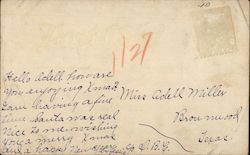 40
1/27
Hello Adell how are
you enjoying Xmas
I am having a fine
time Santa was real
nice to me. wishing
you a merry Xmas
and a happy New Year
Miss Adell Miller
Brownwood
Texas.